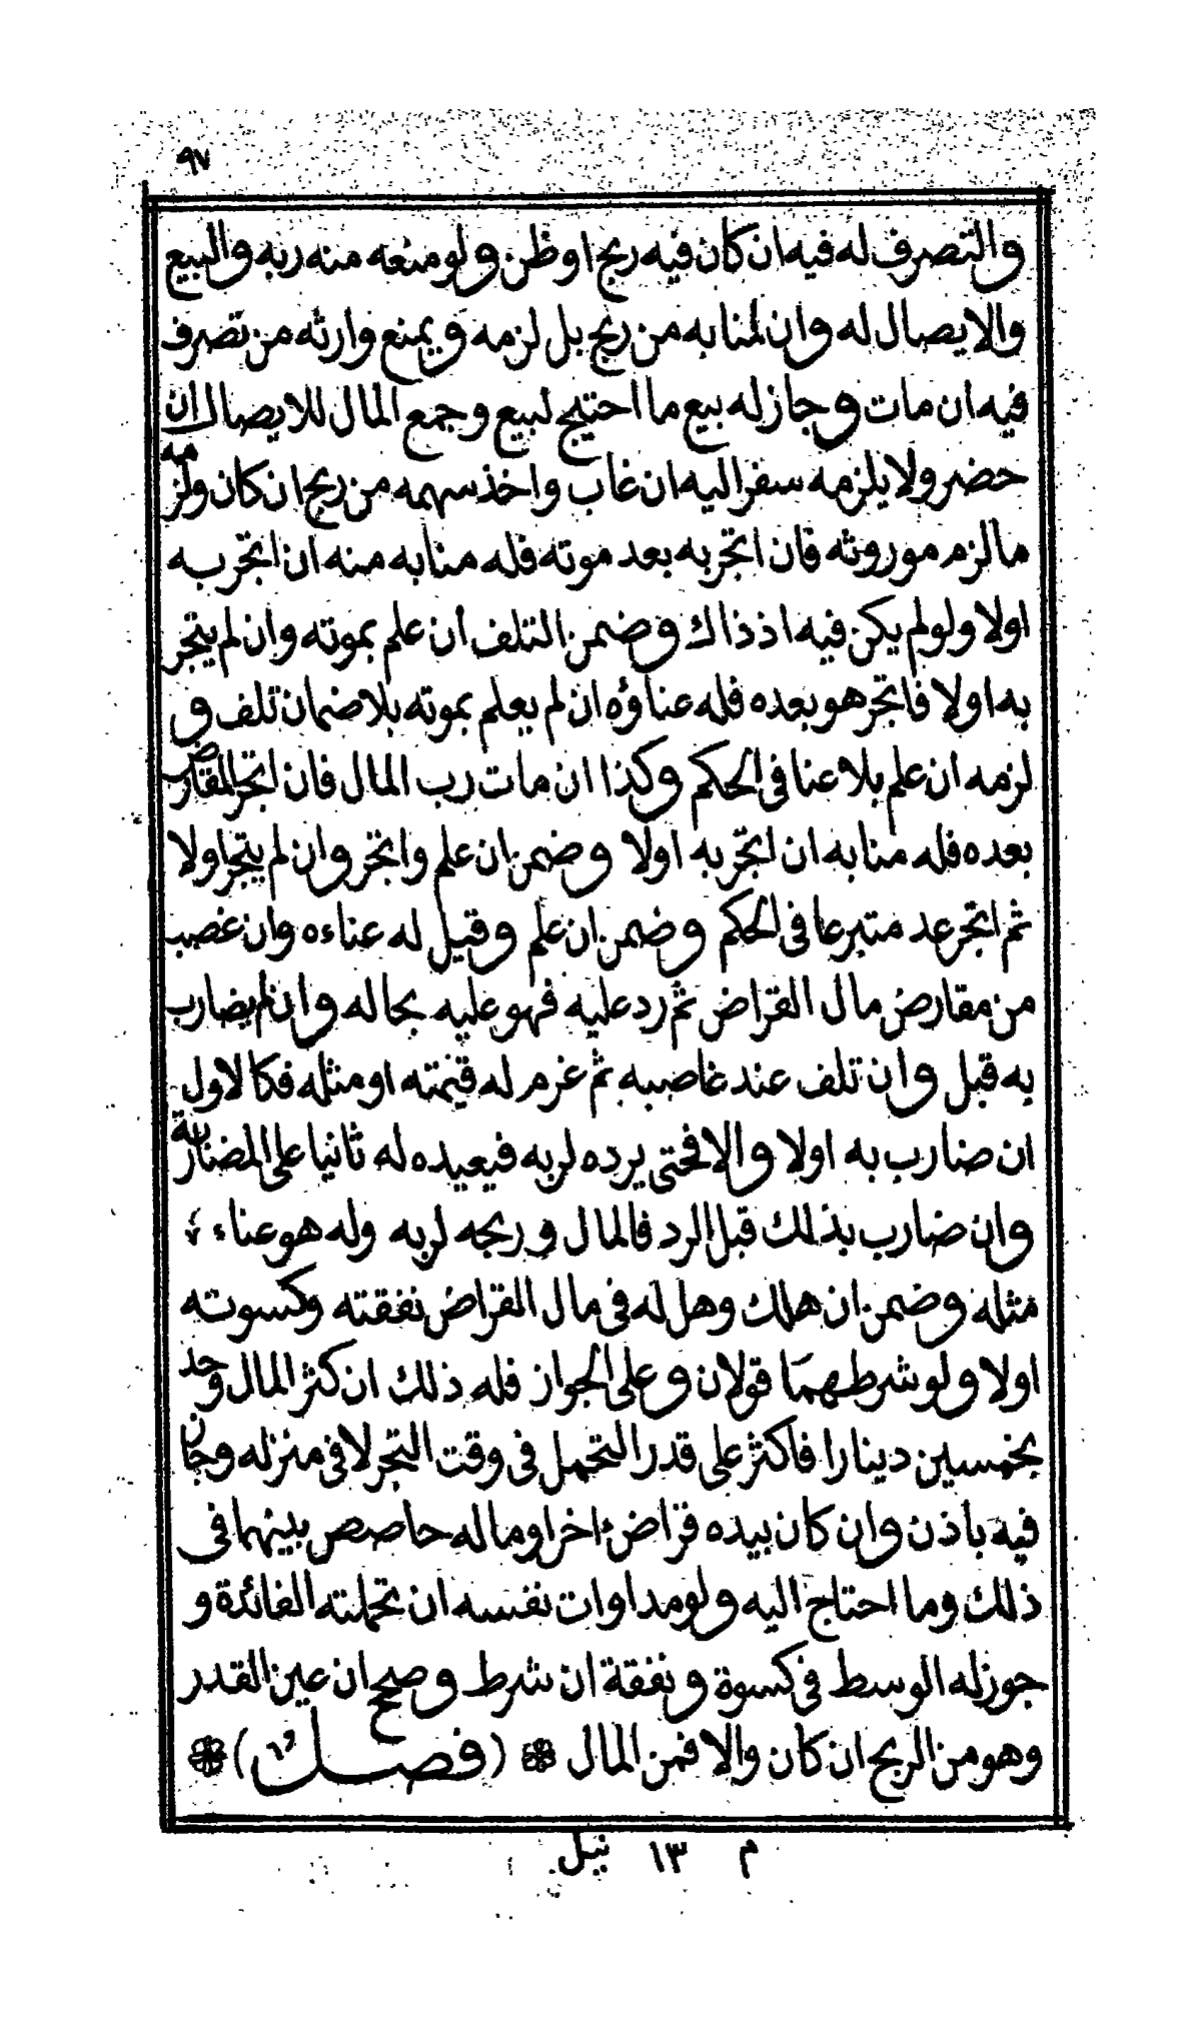 ٩٧
والتصرف له فيه ان كان فيه ربح او ظن ولو منعه منه ربه والبيع
والايصال له وان لمنابه من ربح بل لزمه ويمنع وارثه من تصرف
فيه ان مات وجاز له بيع ما احتيج لبيع وجمع المال للايصال ان
حضر ولا يلزمه سفر اليه ان غاب واخذ سهمه من ربح ان كان ولزمه
ما لزم موروثه فان اتجر به بعد موته فله منابه منه ان اتجر به
اولا ولو لم يكن فيه اذ ذاك وضمن التلف ان علم بموته وان لم يتجر
به اولا فاتجر هو بعده فله عناؤه ان لم يعلم بموته بلا ضمان تلف و
لزمه ان علم بلا عنا فى الحكم وكذا ان مات رب المال فان اتجر المقارض
بعده فله منابه ان اتجر به اولا وضمن ان علم واتجر وان لم يتجر اولا
ثم اتجر عد متبرعا فى الحكم وضمن ان علم وقيل له عناءه وان غصب
من مقارض مال القراض ثم رد عليه فهو عليه بحاله وان لم يضارب
به قبل وان تلف عند غاصبه ثم غرم له قيمته او مثله فكالاول
ان ضارب به اولا والا فحتى يرده لربه فيعيده له ثانيا على المضاربة
وان ضارب بذلك قبل الرد فالمال وربحه لربه وله هو عناء
مثله وضمن ان هلك وهل له فى مال القراض نفقته وكسوته
اولا ولو شرطهما قولان وعلى الجواز فله ذلك ان كثر المال وحد
بخمسين دينارا فاكثر على قدر التحمل فى وقت التجر لا فى منزله وجاز
فيه باذن وان كان بيده قراض اخر او ماله حاصص بينهما فى
ذلك وما احتاج اليه ولو مداوات نفسه ان تحملته الفائدة و
جوز له الوسط فى كسوة ونفقة ان شرط وصح ان عين القدر
وهو من الربح ان كان والا فمن المال (فصل)
م ١٣ نيل